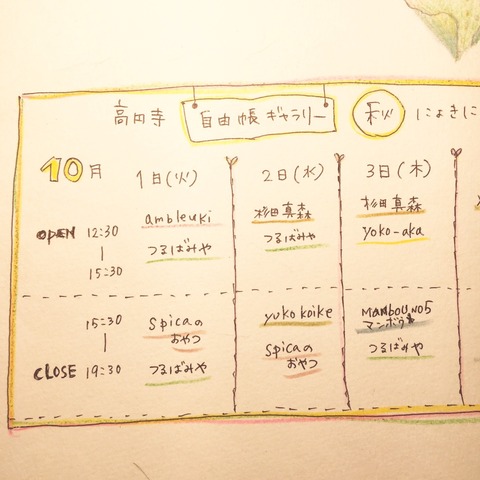 高円寺 自由帳ギャラリー 秋 にょきに
10月 1日(火) 2日(水) 3日(木)
OPEN 12:30
|
15:30
ambleuki
つるばみや
杉田真森
つるばみや
杉田真森
yoko-aka
15:30
|
CLOSE 19:30
spicaの
おやつ
つるばみや
yuko koike
spicaの
おやつ
MANBOU NO5
マンボウ
つるばみや